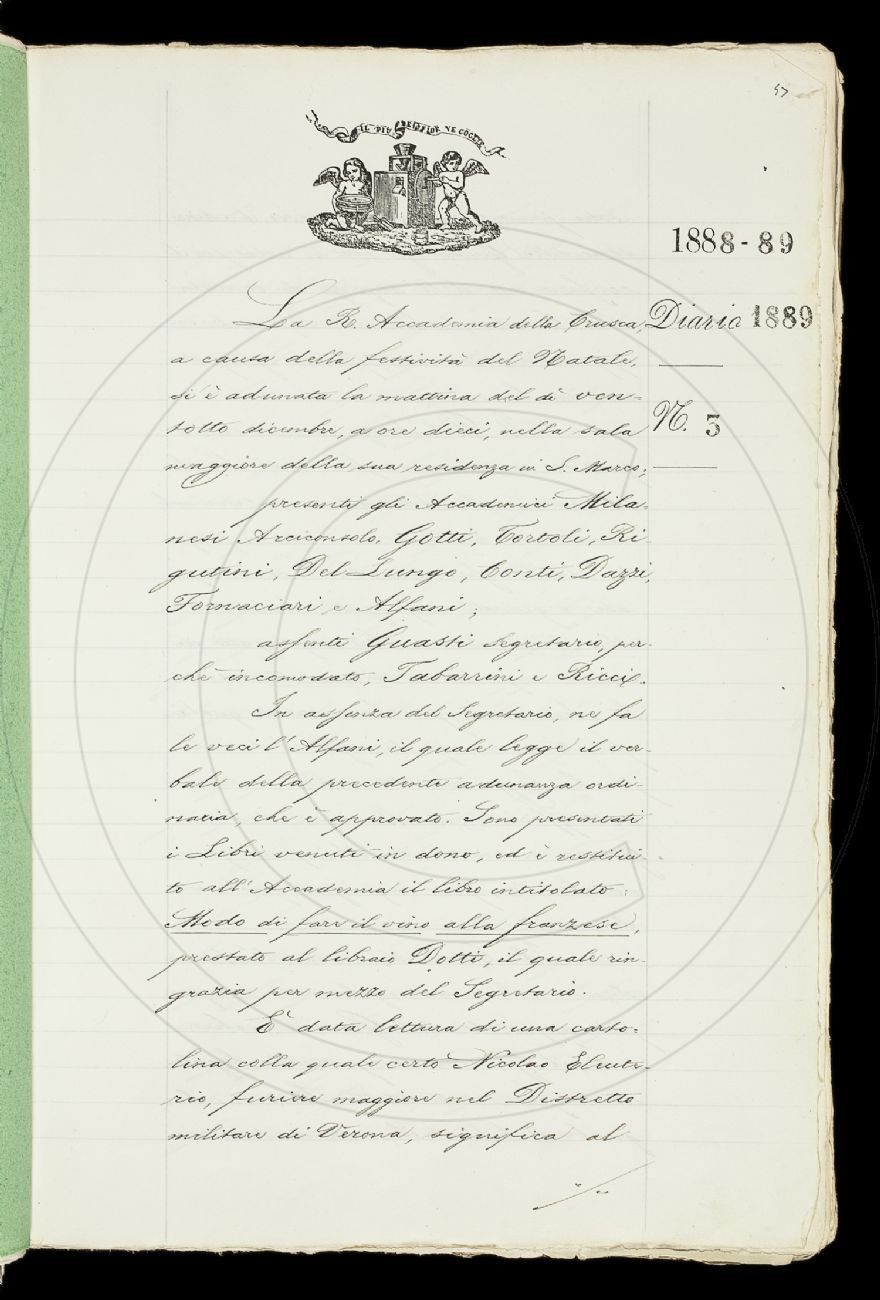 57
IL PIÙ BEL FIOR NE COGLIE
1888-89
Diario 1889
N. 3
La R. Accademia della Crusca,
a causa della festività del Natale,
si è adunata la mattina del dì ven-
totto dicembre, a ore dieci, nella sala
maggiore della sua residenza in S. Marco;
presenti gli Accademici Mila-
nesi Arciconsolo, Gotti, Tortoli, Ri-
gutini, Del Lungo, Conti, Dazzi,
Fornaciari e Alfani;
assenti Guasti Segretario, per-
chè incomodato, Tabarrini e Ricci.
In assenza del Segretario, ne fa
le veci l'Alfani, il quale legge il ver-
bale della precedente adunanza ordi-
naria, che è approvato. Sono presentati
i Libri venuti in dono, ed è restitui-
to all'Accademia il libro intitolato:
Modo di fare il vino alla franzese,
prestato al libraio Dotti, il quale rin-
grazia per mezzo del Segretario.
È data lettura di una carto-
lina colla quale certo Nicolao Eleute-
rio, furiere maggiore nel Distretto
militare di Verona, significa al